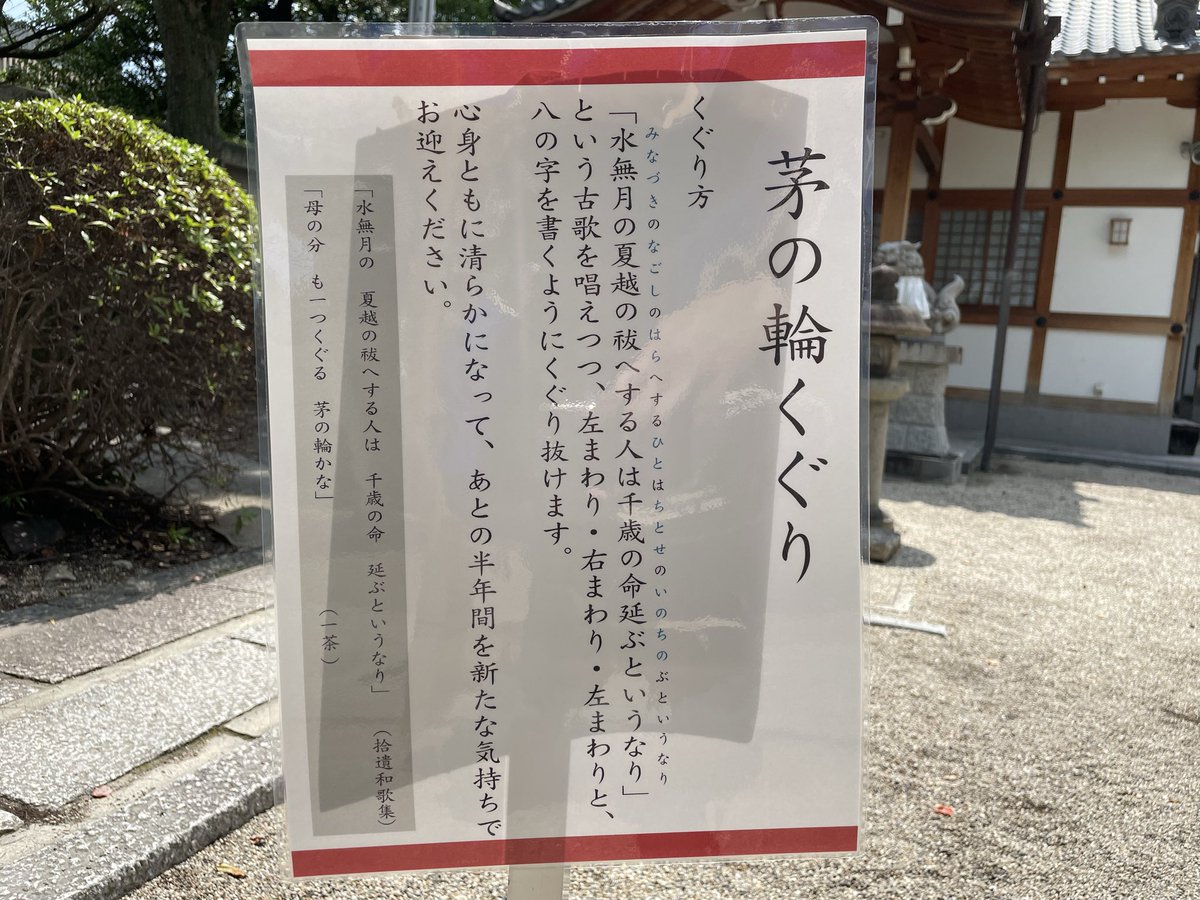 茅の輪くぐり
くぐり方
みなづきのなごしのはらへするひとはちとせのいのちのぶというなり
「水無月の夏越の祓へする人は千歳の命延ぶというなり」
という古歌を唱えつつ、左まわり・右まわり・左まわりと、
八の字を書くようにくぐり抜けます。
心身ともに清らかになって、あとの半年間を新たな気持ちで
お迎えください。
「水無月の 夏越の祓へする人は 千歳の命 延ぶというなり」 (拾遺和歌集)
「母の分 も一つくぐる 茅の輪かな」 (一茶)